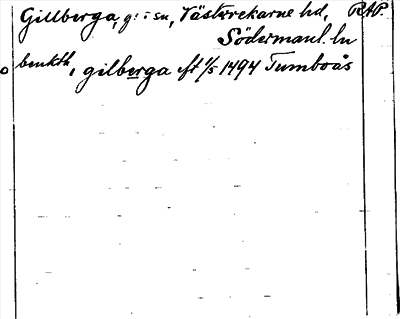 Gillberga, g:i sn, Västerrekarne hd, RAP.
Södermanl. ln
benkth, i gilberga ft 1/5 1494 Tumboås